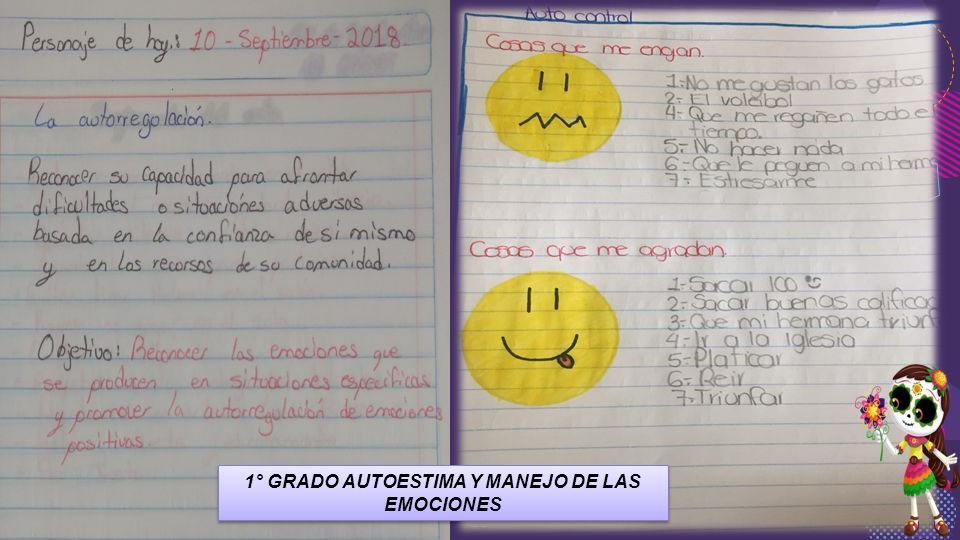 Personaje de hoy.: 10 - Septiembre - 2018.
La autorregolación.
Reconocer su capacidad para afrontar
dificultades o sitoaciones adversas
basada en la confianza de si mismo
y en los recorsos de su comunidad.
Objetivo: Reconocer las emociones que
se producen en situaciones especificas
y promover la autorregulación de emociones
positivas.
Auto control
Cosas que me enojan.
1:-No me gustan los gatos
2:- El voleibol
4:- Que me regañen todo el
tiempo.
5:- No hacer nada
6:-Que le peguen a mi herma
7:- Estresarme
Cosas que me agradan.
1:-Sacar 100
2:-Sacar buenas calificac
3:-Que mi hermana triunf
4:-Ir a la Iglesia
5:-Platicar
6:- Reir
7:-Triunfar
1° GRADO AUTOESTIMA Y MANEJO DE LAS
EMOCIONES